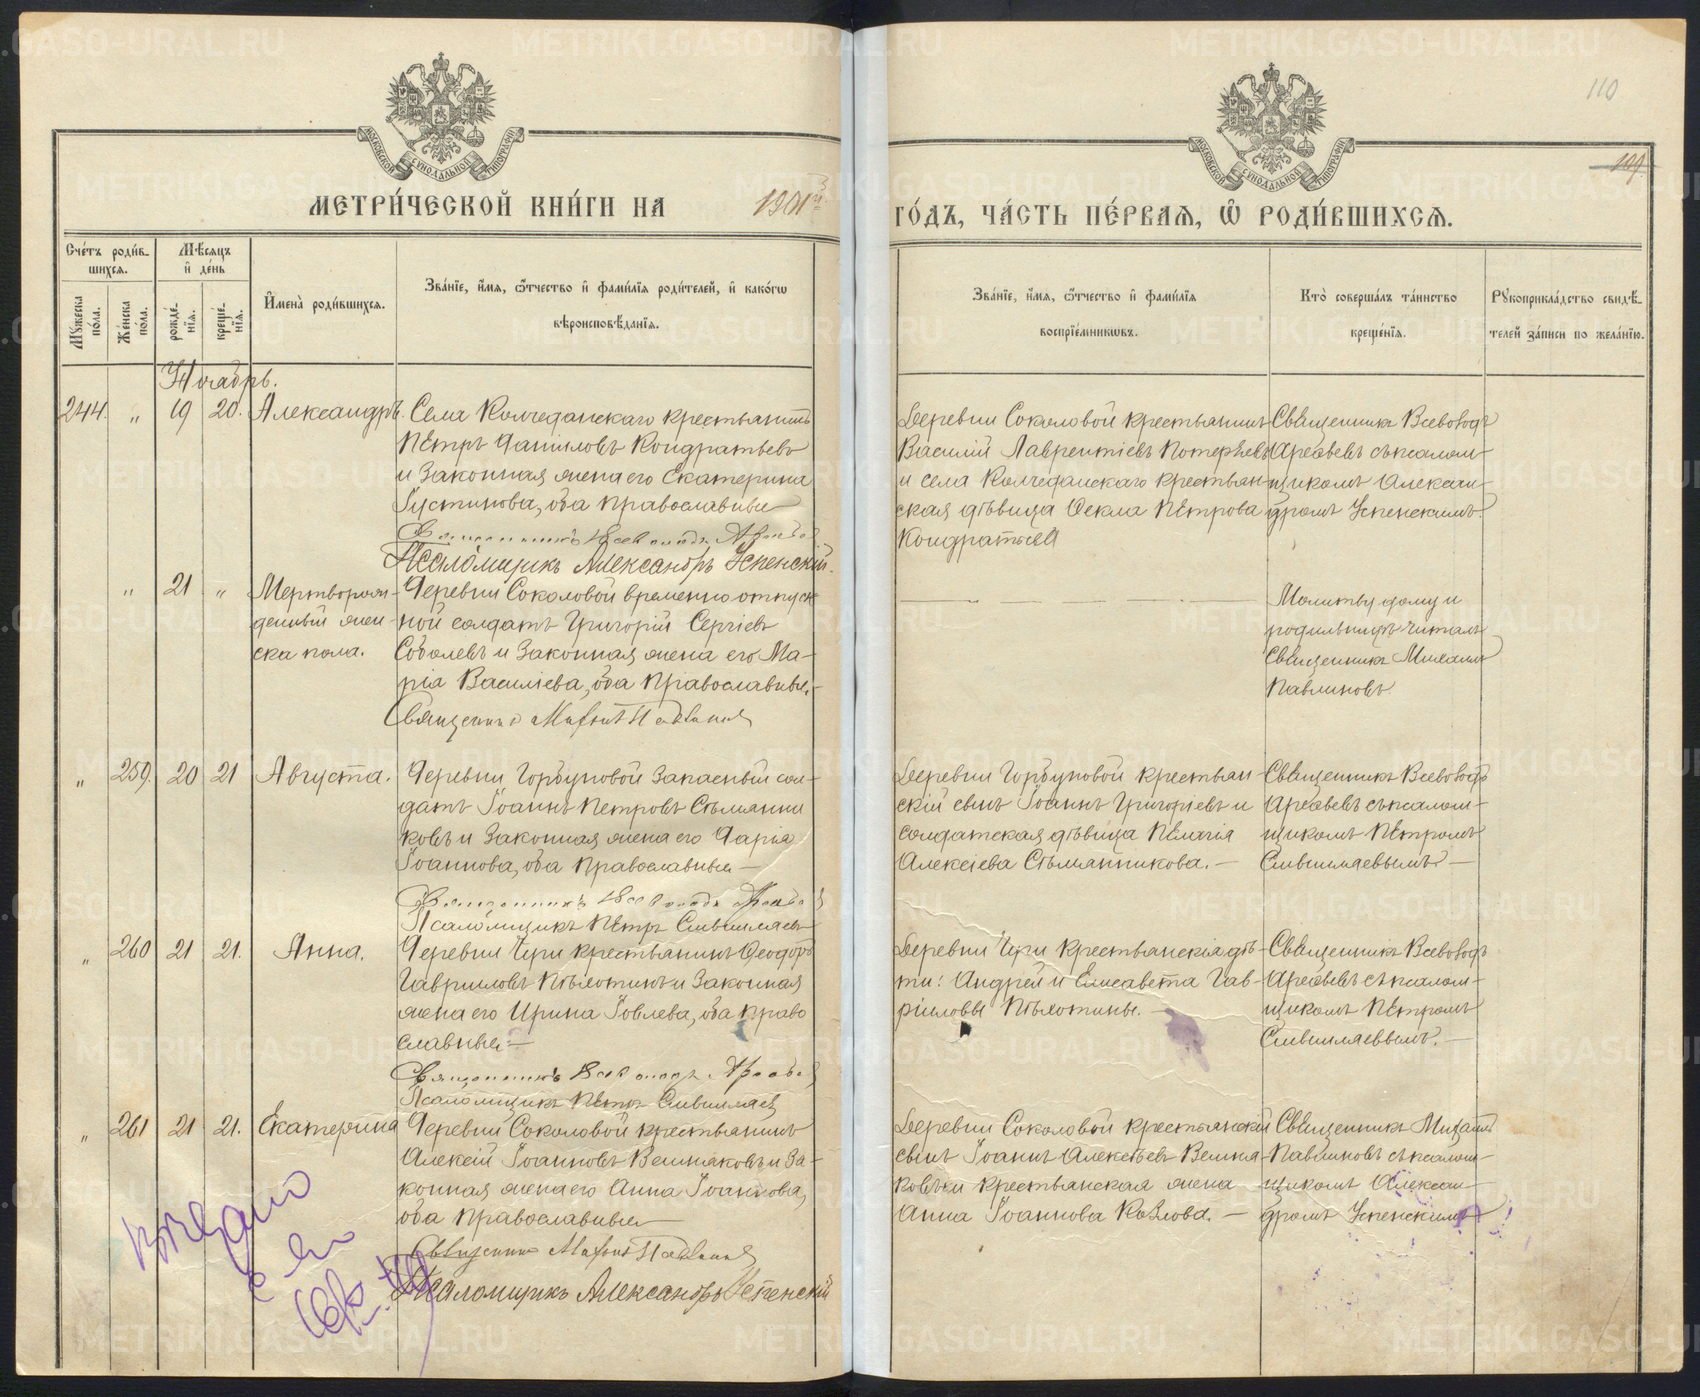 110
109
МЕТРИ́ЧЕСКОЙ КНИ́ГИ НА 1901
ГО́ДЪ, ЧА́СТЬ ПЕ́РВАЯ, Ѡ РОДИ́ВШИХСЯ.
Сче́тъ роди́в-
шихся.
Мѣ́сяцъ
и҆ де́нь
Мꙋ́жеска
по́ла.
Же́нска
по́ла.
рожде́-
нїя.
креще́-
нїя.
И҆мена̀ роди́вшихся.
Зва́нїе, и҆́мя, ѻ҆́тчество и҆ фами́лїя роди́телей, и҆ како́гѡ
вѣроисповѣ́данїя.
Зва́нїе, и҆́мя, ѻ҆́тчество и҆ фами́лїя
воспрїе́мникѡвъ.
Кто̀ соверша́лъ та́инство
креще́нїя.
Рꙋкоприкла́дство свидѣ́-
телей за́писи по жела́нїю.
Ноябрь.
244. " 19 20. Александръ.
Села Колчеданскаго крестьянинъ
Петръ Даниловъ Кондратьевъ
и законная жена его Екатерина
Іустинова, оба православные
Псаломщикъ Александръ Успенскій.
Деревни Соколовой крестьянинъ
Василій Лаврентіевъ Потеряевъ
и села Колчеданскаго крестьян-
ская дѣвица Ѳекла Петрова
Кондратьева
Священникъ Всеволодъ
Арефьевъ съ псалом-
щикомъ Алексан-
дромъ Успенскимъ.
" 21 " Мертворож-
денный жен-
ска пола.
Деревни Соколовой временно отпуск
ной солдатъ Григорій Сергіевъ
Соболевъ и законная жена его Ма-
рія Василіева, оба православные.
Священникъ Михаилъ Павлиновъ
Молитву дому и
родильницѣ читалъ
Священникъ Михаилъ
Павлиновъ.
" 259. 20 21 Августа.
Деревни Горбуновой запасный сол-
датъ Іоаннъ Петровъ Стѣлянни
ковъ и законная жена его Дарія
Іоаннова, оба православные
Псаломщикъ Петръ
Деревни Горбуновой крестьян-
скій сынъ Іоаннъ Григоріевъ и
солдатская дѣвица Пелагія
Алексіева Стѣлянникова.
Священникъ Всеволодъ
Арефьевъ съ псалом-
щикомъ Петромъ
" 260 21 21. Анна.
Деревни Чери крестьянинъ Ѳеодоръ
Гавриловъ Пѣхотинъ и законная
жена его Ирина Іовлева, оба право
славные
Священникъ Всеволодъ Арефьевъ
Псаломщикъ Петръ
Деревни Чери крестьянскія дѣ-
ти: Андрей и Елисавета Гав-
риловы Пѣхотины.
Священникъ Всеволодъ
Арефьевъ съ псалом-
щикомъ Петромъ
" 261 21 21. Екатерина
Деревни Соколовой крестьянинъ
Алексій Іоанновъ Вешняковъ и за-
конная жена его Анна Іоаннова,
оба православные
Священникъ Михаилъ Павлиновъ
Псаломщикъ Александръ Успенскій
Деревни Соколовой крестьянскій
сынъ Іоаннъ Алексѣевъ Вешня-
ковъ и крестьянская жена
Анна Іоаннова Козлова.
Священникъ Михаилъ
Павлиновъ съ псалом-
щикомъ Алексан-
дромъ Успенскимъ
METRIKI.GASO-URAL.RU